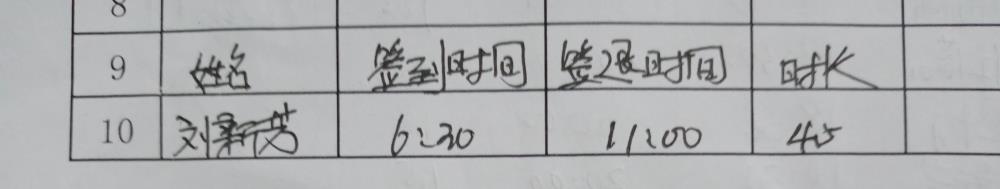 8
9 姓名 签到时间 签退时间 时长
10 刘新芳 6:30 11:00 4.5